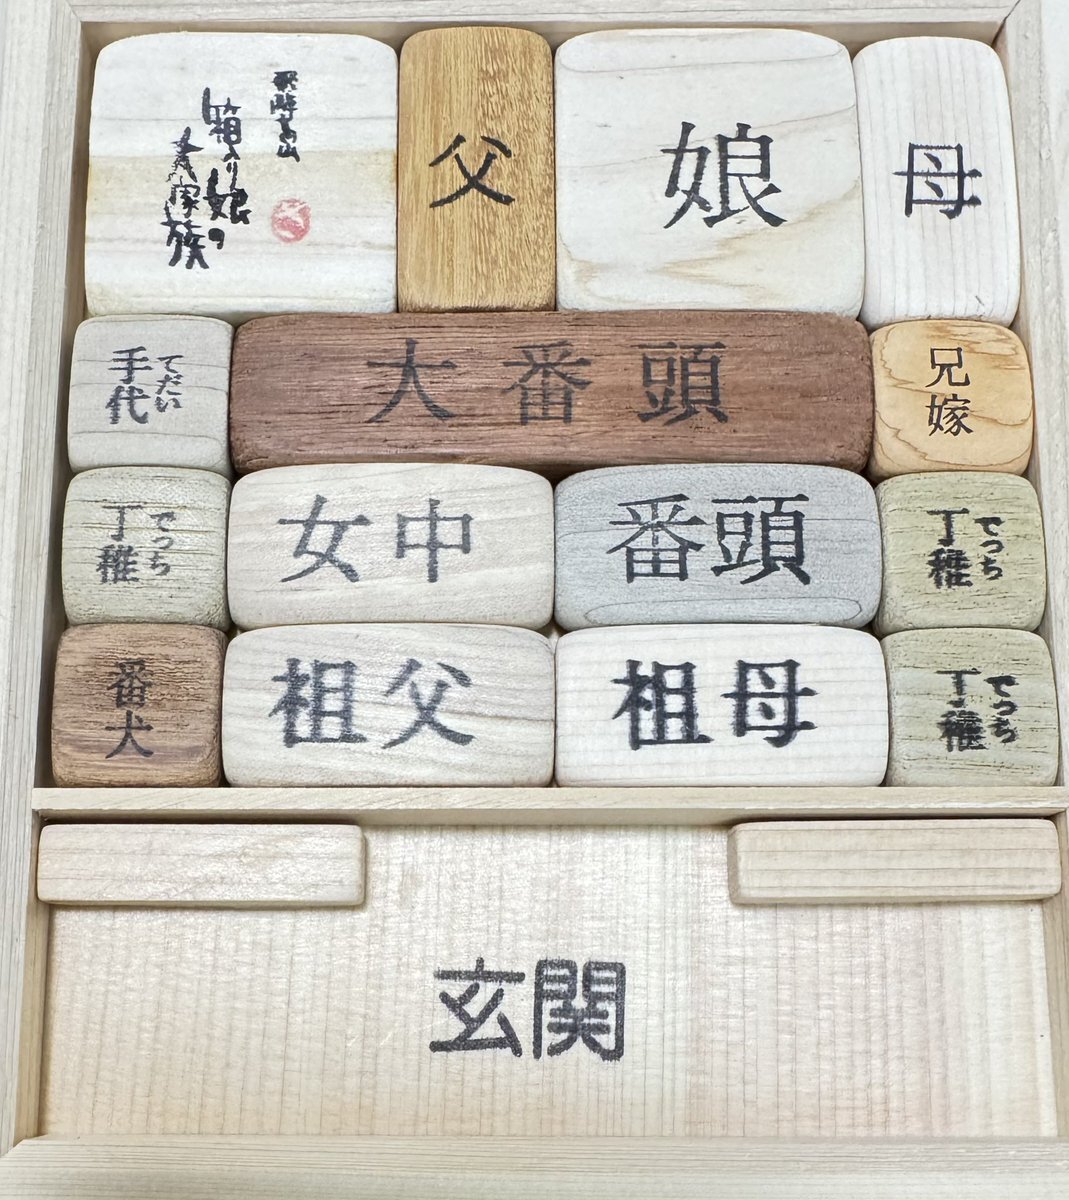 飛騨高山
箱入り娘の
大家族
父
娘
母
手代
てだい
大番頭
兄嫁
丁稚
でっち
女中
番頭
丁稚
でっち
番犬
祖父
祖母
丁稚
でっち
玄関